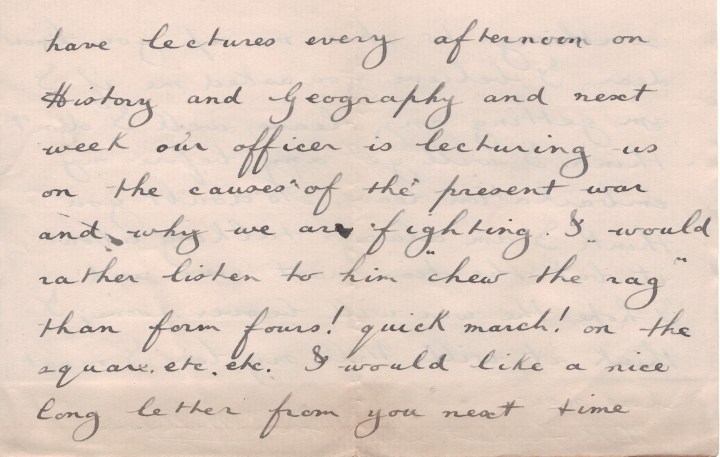 have lectures every afternoon on
History and Geography and next
week our officer is lecturing us
on the causes of the present war
and why we are fighting. I would
rather listen to him "chew the rag"
than form fours! quick march! on the
square. etc. etc. I would like a nice
long letter from you next time